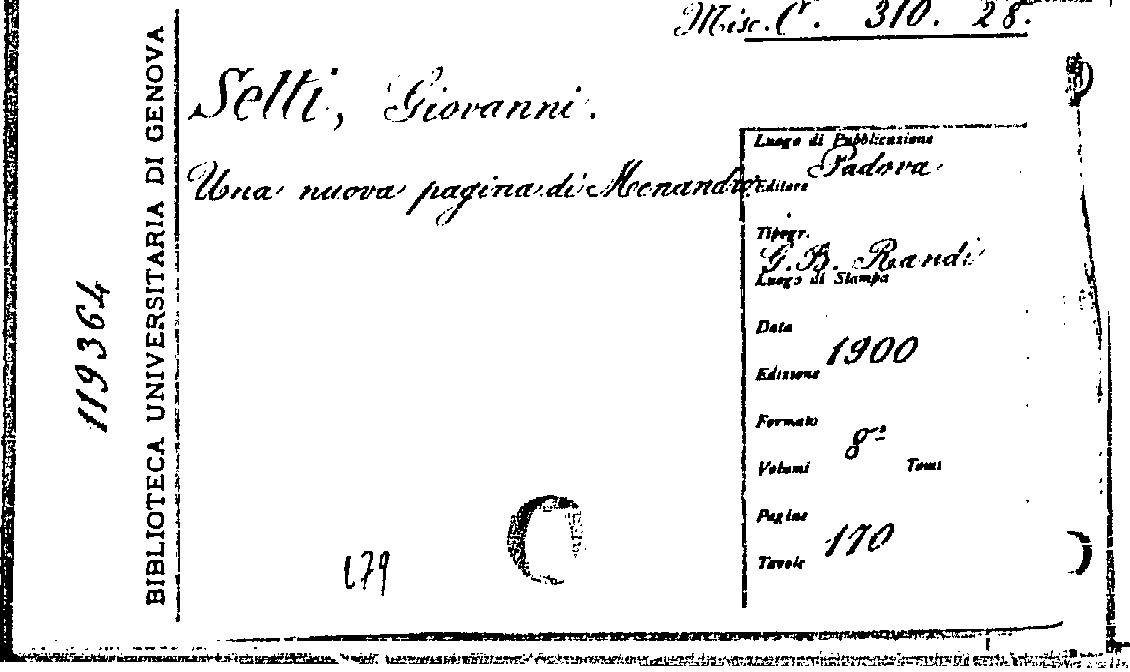 Misc. Cr. 310. 28.
Setti, Giovanni.
Una nuova pagina di Menandro.
Luogo di Pubblicazione
Padova
Editore
Tipogr.
G. B. Randi
Luogo di Stampa
Data
1900
Edizione
Formato
8º
Volumi Tomi
Pagine
170
Tavole
179
BIBLIOTECA UNIVERSITARIA DI GENOVA
119364